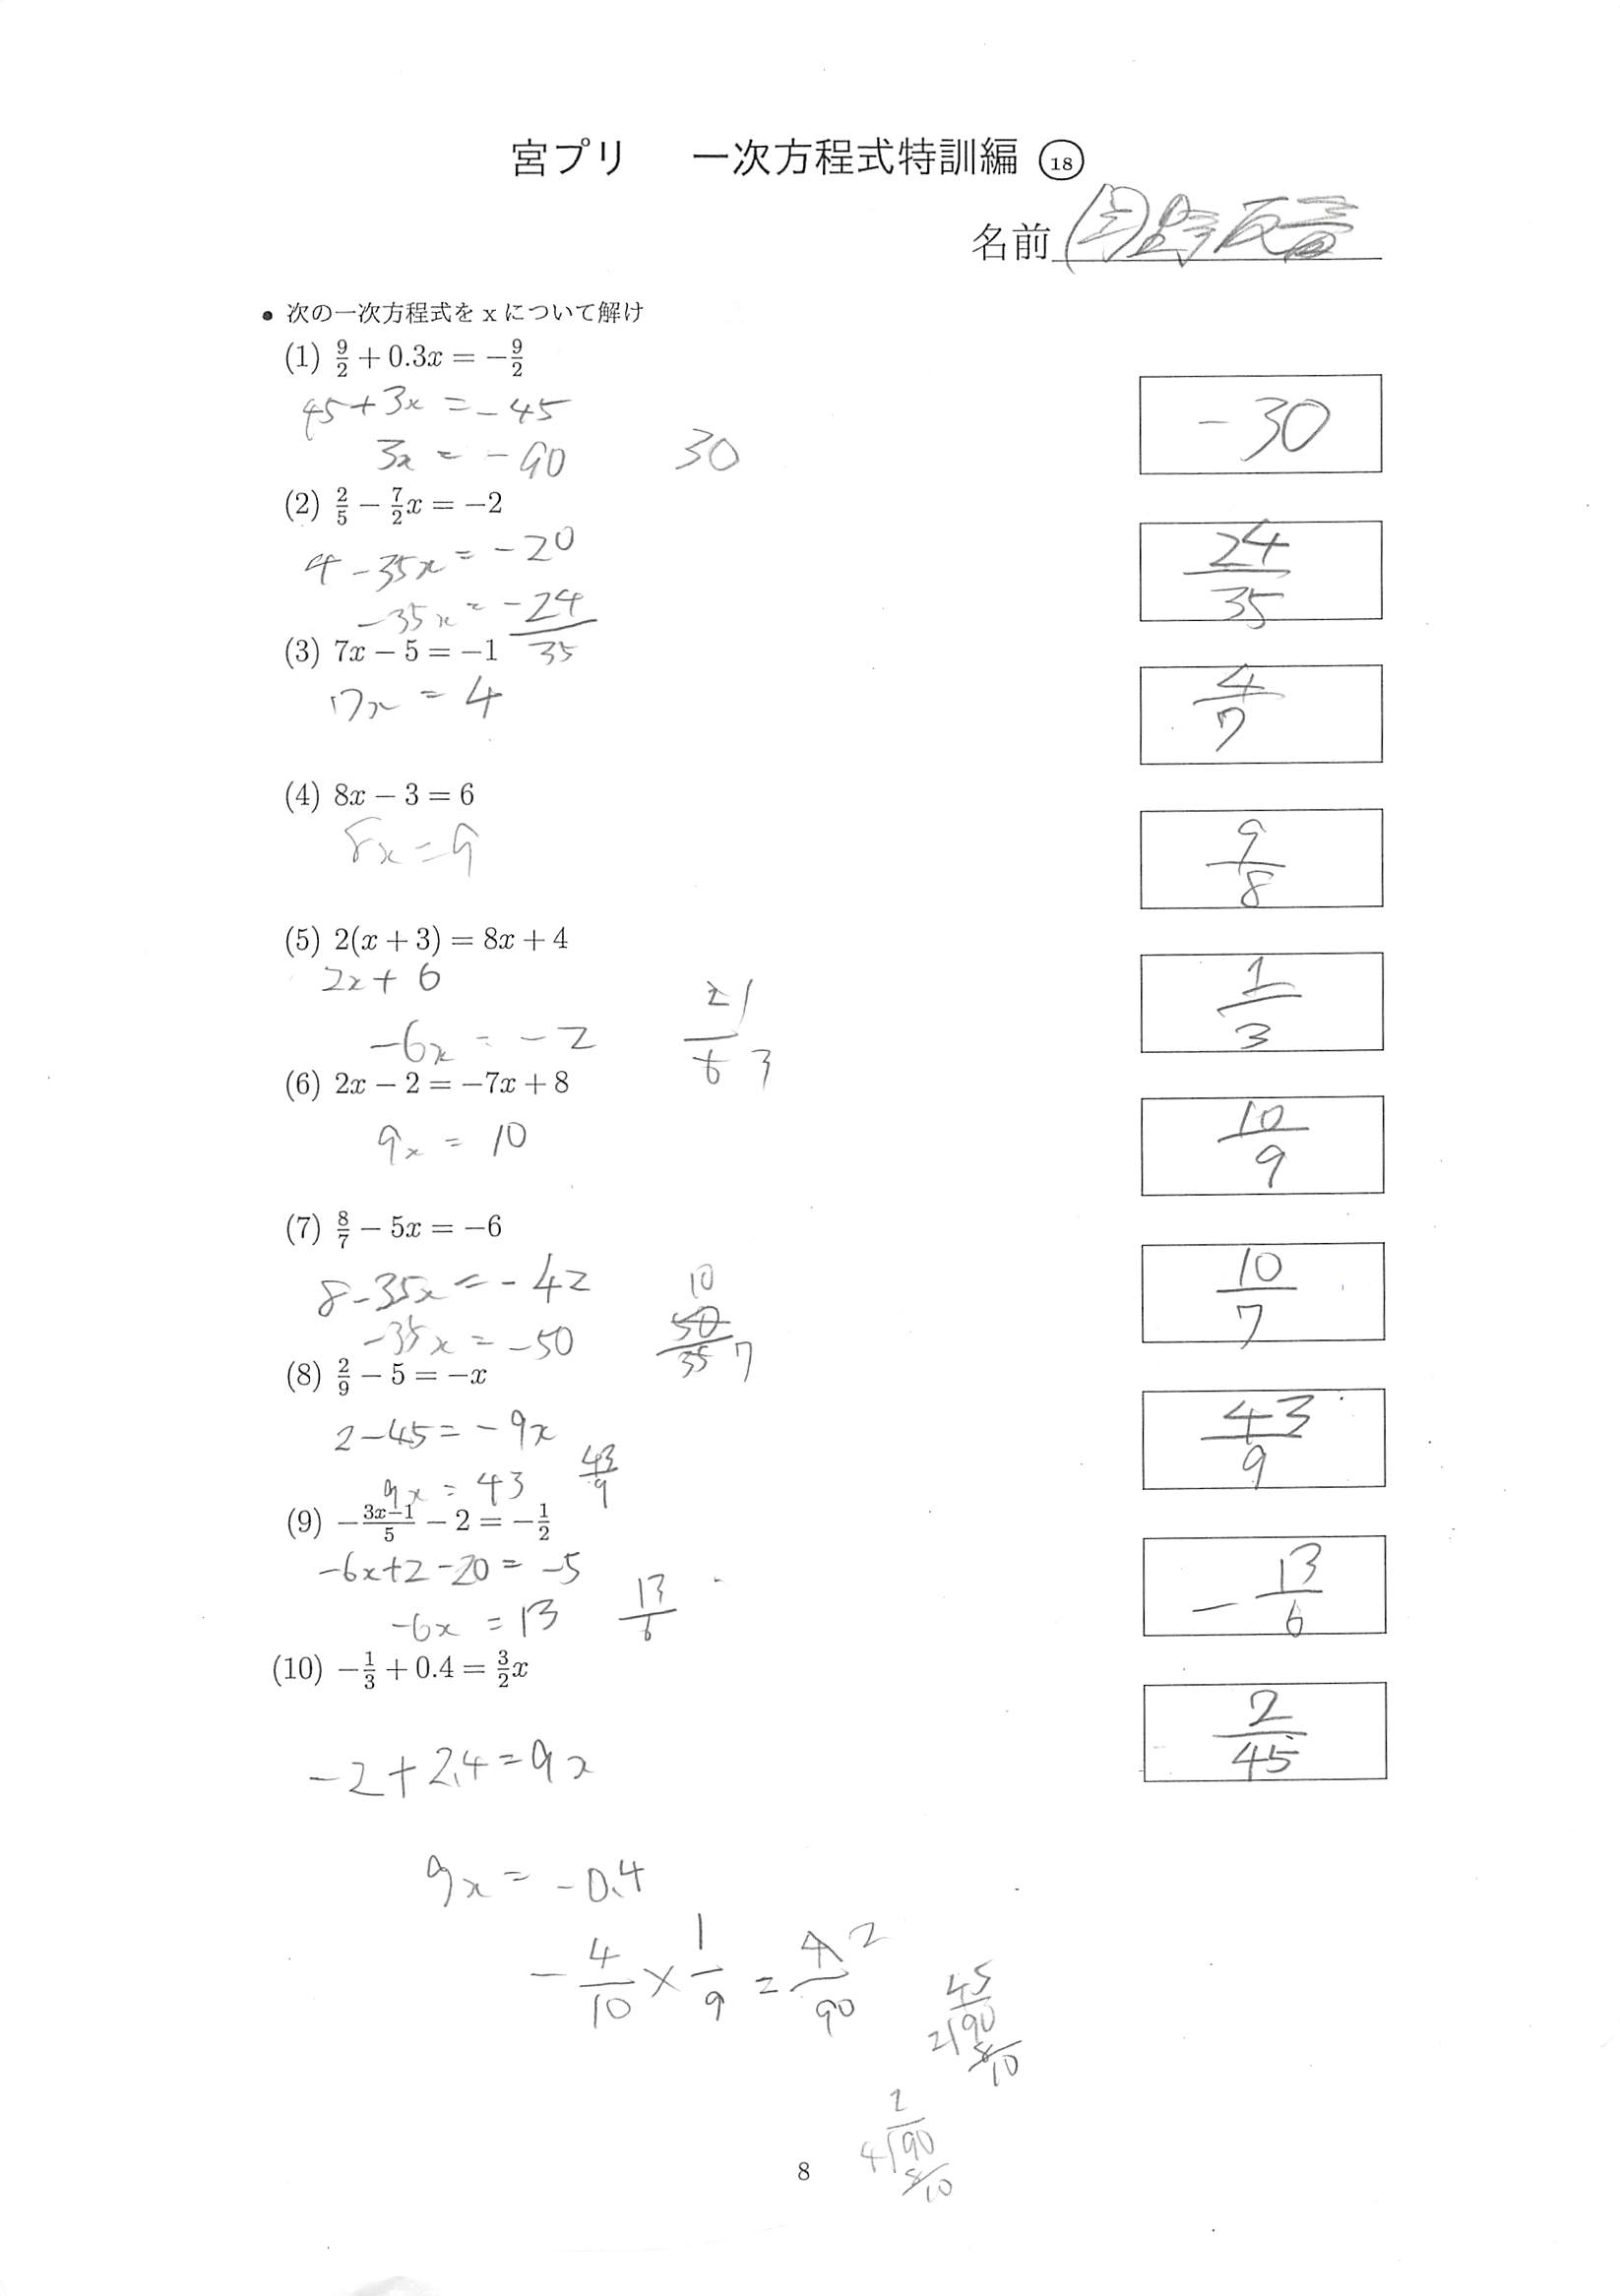 宮プリ 一次方程式特訓編 ⑱
名前
• 次の一次方程式を x について解け
(1) 9/2 + 0.3x = −9/2
45+3x = −45
3x = −90 30
−30
(2) 2/5 − 7/2 x = −2
4 − 35x = −20
−35x = −24/35
24/35
(3) 7x − 5 = −1
7x = 4
4/7
(4) 8x − 3 = 6
8x = 9
9/8
(5) 2(x + 3) = 8x + 4
2x + 6
−6x = −2
1/3
(6) 2x − 2 = −7x + 8
9x = 10
10/9
(7) 8/7 − 5x = −6
8 − 35x = −42 10
−35x = −50 50/35 7
10/7
(8) 2/9 − 5 = −x
2 − 45 = −9x
9x = 43 43/9
43/9
(9) −(3x−1)/5 − 2 = −1/2
−6x+2−20 = −5
−6x = 13 13/6
−13/6
(10) −1/3 + 0.4 = 3/2 x
−2 + 2.4 = 9x
2/45
9x = −0.4
−4/10 × 1/9 = 4/90 2
45
2)90
8
10
2
4)90
8
10
8